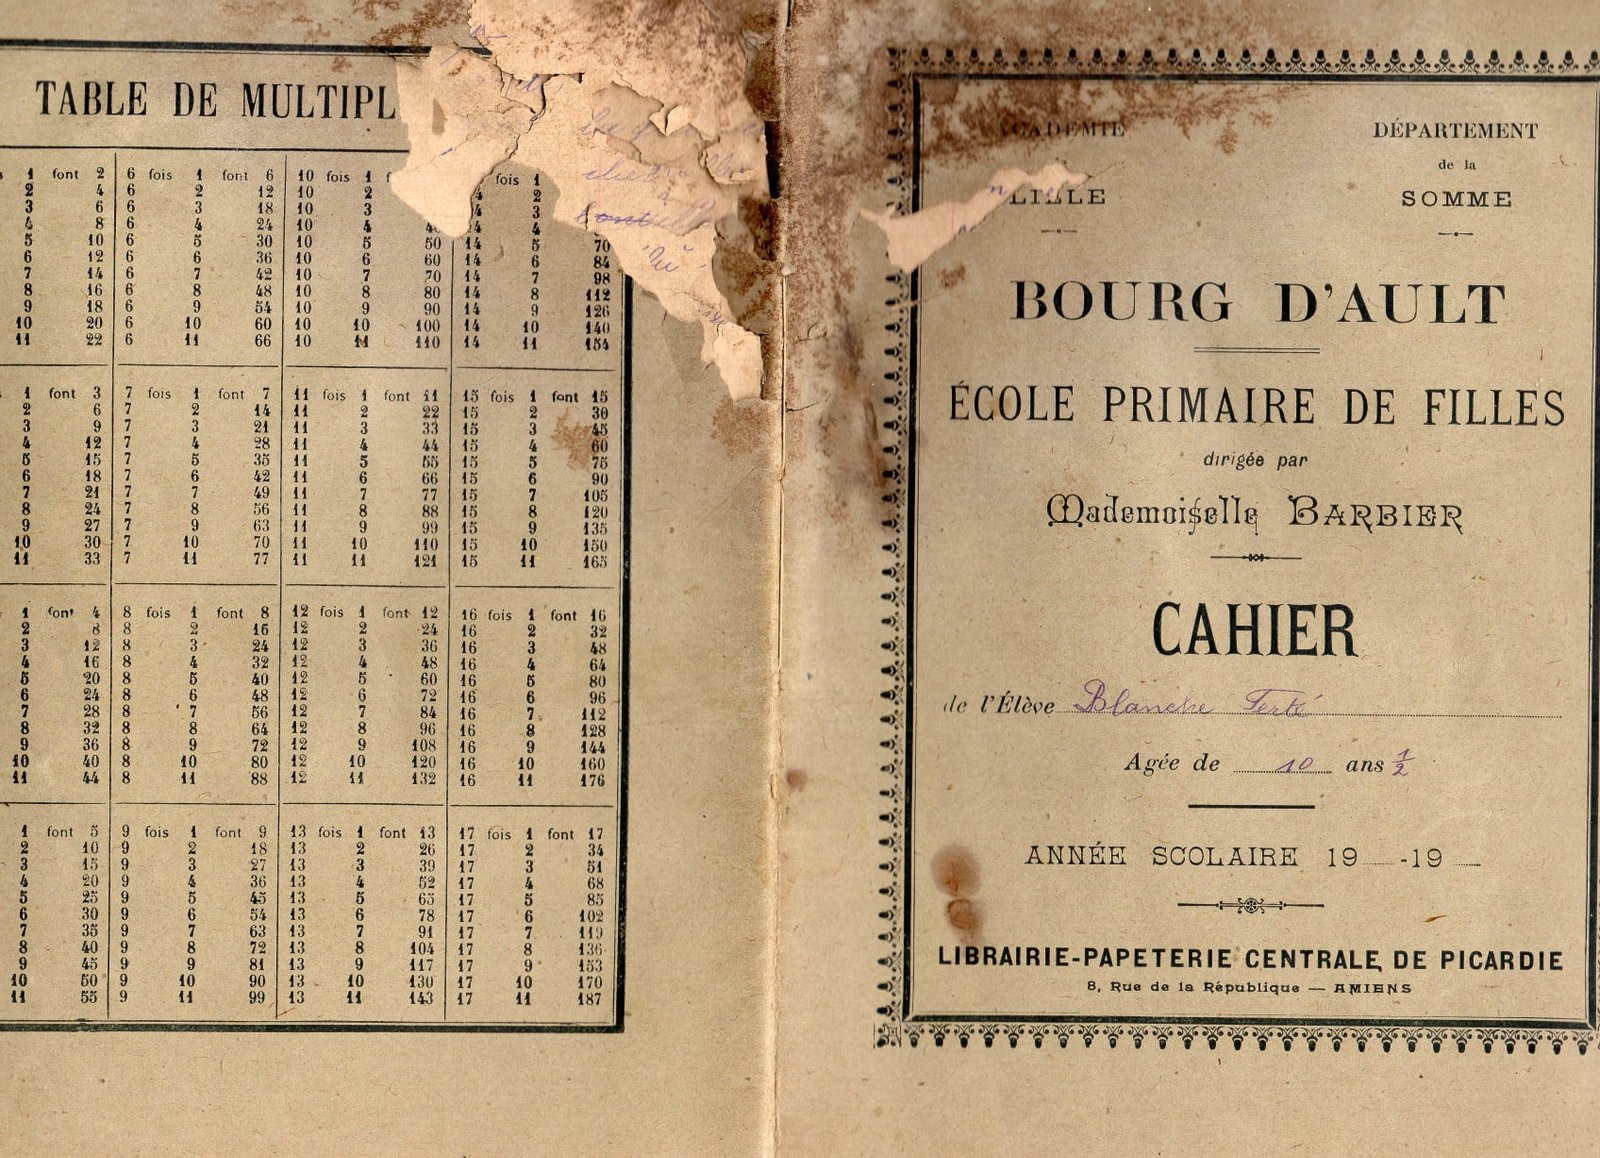 TABLE DE MULTIPL
1 font 2 6 fois 1 font 6 10 fois 1 fois 1
2 4 6 2 12 10 2 2
3 6 6 3 18 10 3 3
4 8 6 4 24 10 4 14 4
5 10 6 5 30 10 5 50 14 5 70
6 12 6 6 36 10 6 60 14 6 84
7 14 6 7 42 10 7 70 14 7 98
8 16 6 8 48 10 8 80 14 8 112
9 18 6 9 54 10 9 90 14 9 126
10 20 6 10 60 10 10 100 14 10 140
11 22 6 11 66 10 11 110 14 11 154
1 font 3 7 fois 1 font 7 11 fois 1 font 11 15 fois 1 font 15
2 6 7 2 14 11 2 22 15 2 30
3 9 7 3 21 11 3 33 15 3 45
4 12 7 4 28 11 4 44 15 4 60
5 15 7 5 35 11 5 55 15 5 75
6 18 7 6 42 11 6 66 15 6 90
7 21 7 7 49 11 7 77 15 7 105
8 24 7 8 56 11 8 88 15 8 120
9 27 7 9 63 11 9 99 15 9 135
10 30 7 10 70 11 10 110 15 10 150
11 33 7 11 77 11 11 121 15 11 165
1 font 4 8 fois 1 font 8 12 fois 1 font 12 16 fois 1 font 16
2 8 8 2 16 12 2 24 16 2 32
3 12 8 3 24 12 3 36 16 3 48
4 16 8 4 32 12 4 48 16 4 64
5 20 8 5 40 12 5 60 16 5 80
6 24 8 6 48 12 6 72 16 6 96
7 28 8 7 56 12 7 84 16 7 112
8 32 8 8 64 12 8 96 16 8 128
9 36 8 9 72 12 9 108 16 9 144
10 40 8 10 80 12 10 120 16 10 160
11 44 8 11 88 12 11 132 16 11 176
1 font 5 9 fois 1 font 9 13 fois 1 font 13 17 fois 1 font 17
2 10 9 2 18 13 2 26 17 2 34
3 15 9 3 27 13 3 39 17 3 51
4 20 9 4 36 13 4 52 17 4 68
5 25 9 5 45 13 5 65 17 5 85
6 30 9 6 54 13 6 78 17 6 102
7 35 9 7 63 13 7 91 17 7 119
8 40 9 8 72 13 8 104 17 8 136
9 45 9 9 81 13 9 117 17 9 153
10 50 9 10 90 13 10 130 17 10 170
11 55 9 11 99 13 11 143 17 11 187
ACADÉMIE
LILLE
DÉPARTEMENT
de la
SOMME
BOURG D'AULT
ÉCOLE PRIMAIRE DE FILLES
dirigée par
Mademoiselle BARBIER
CAHIER
de l'Élève Blanche Terté
Agée de 10 ans 1/2
ANNÉE SCOLAIRE 19 -19
LIBRAIRIE-PAPETERIE CENTRALE DE PICARDIE
8, Rue de la République — AMIENS